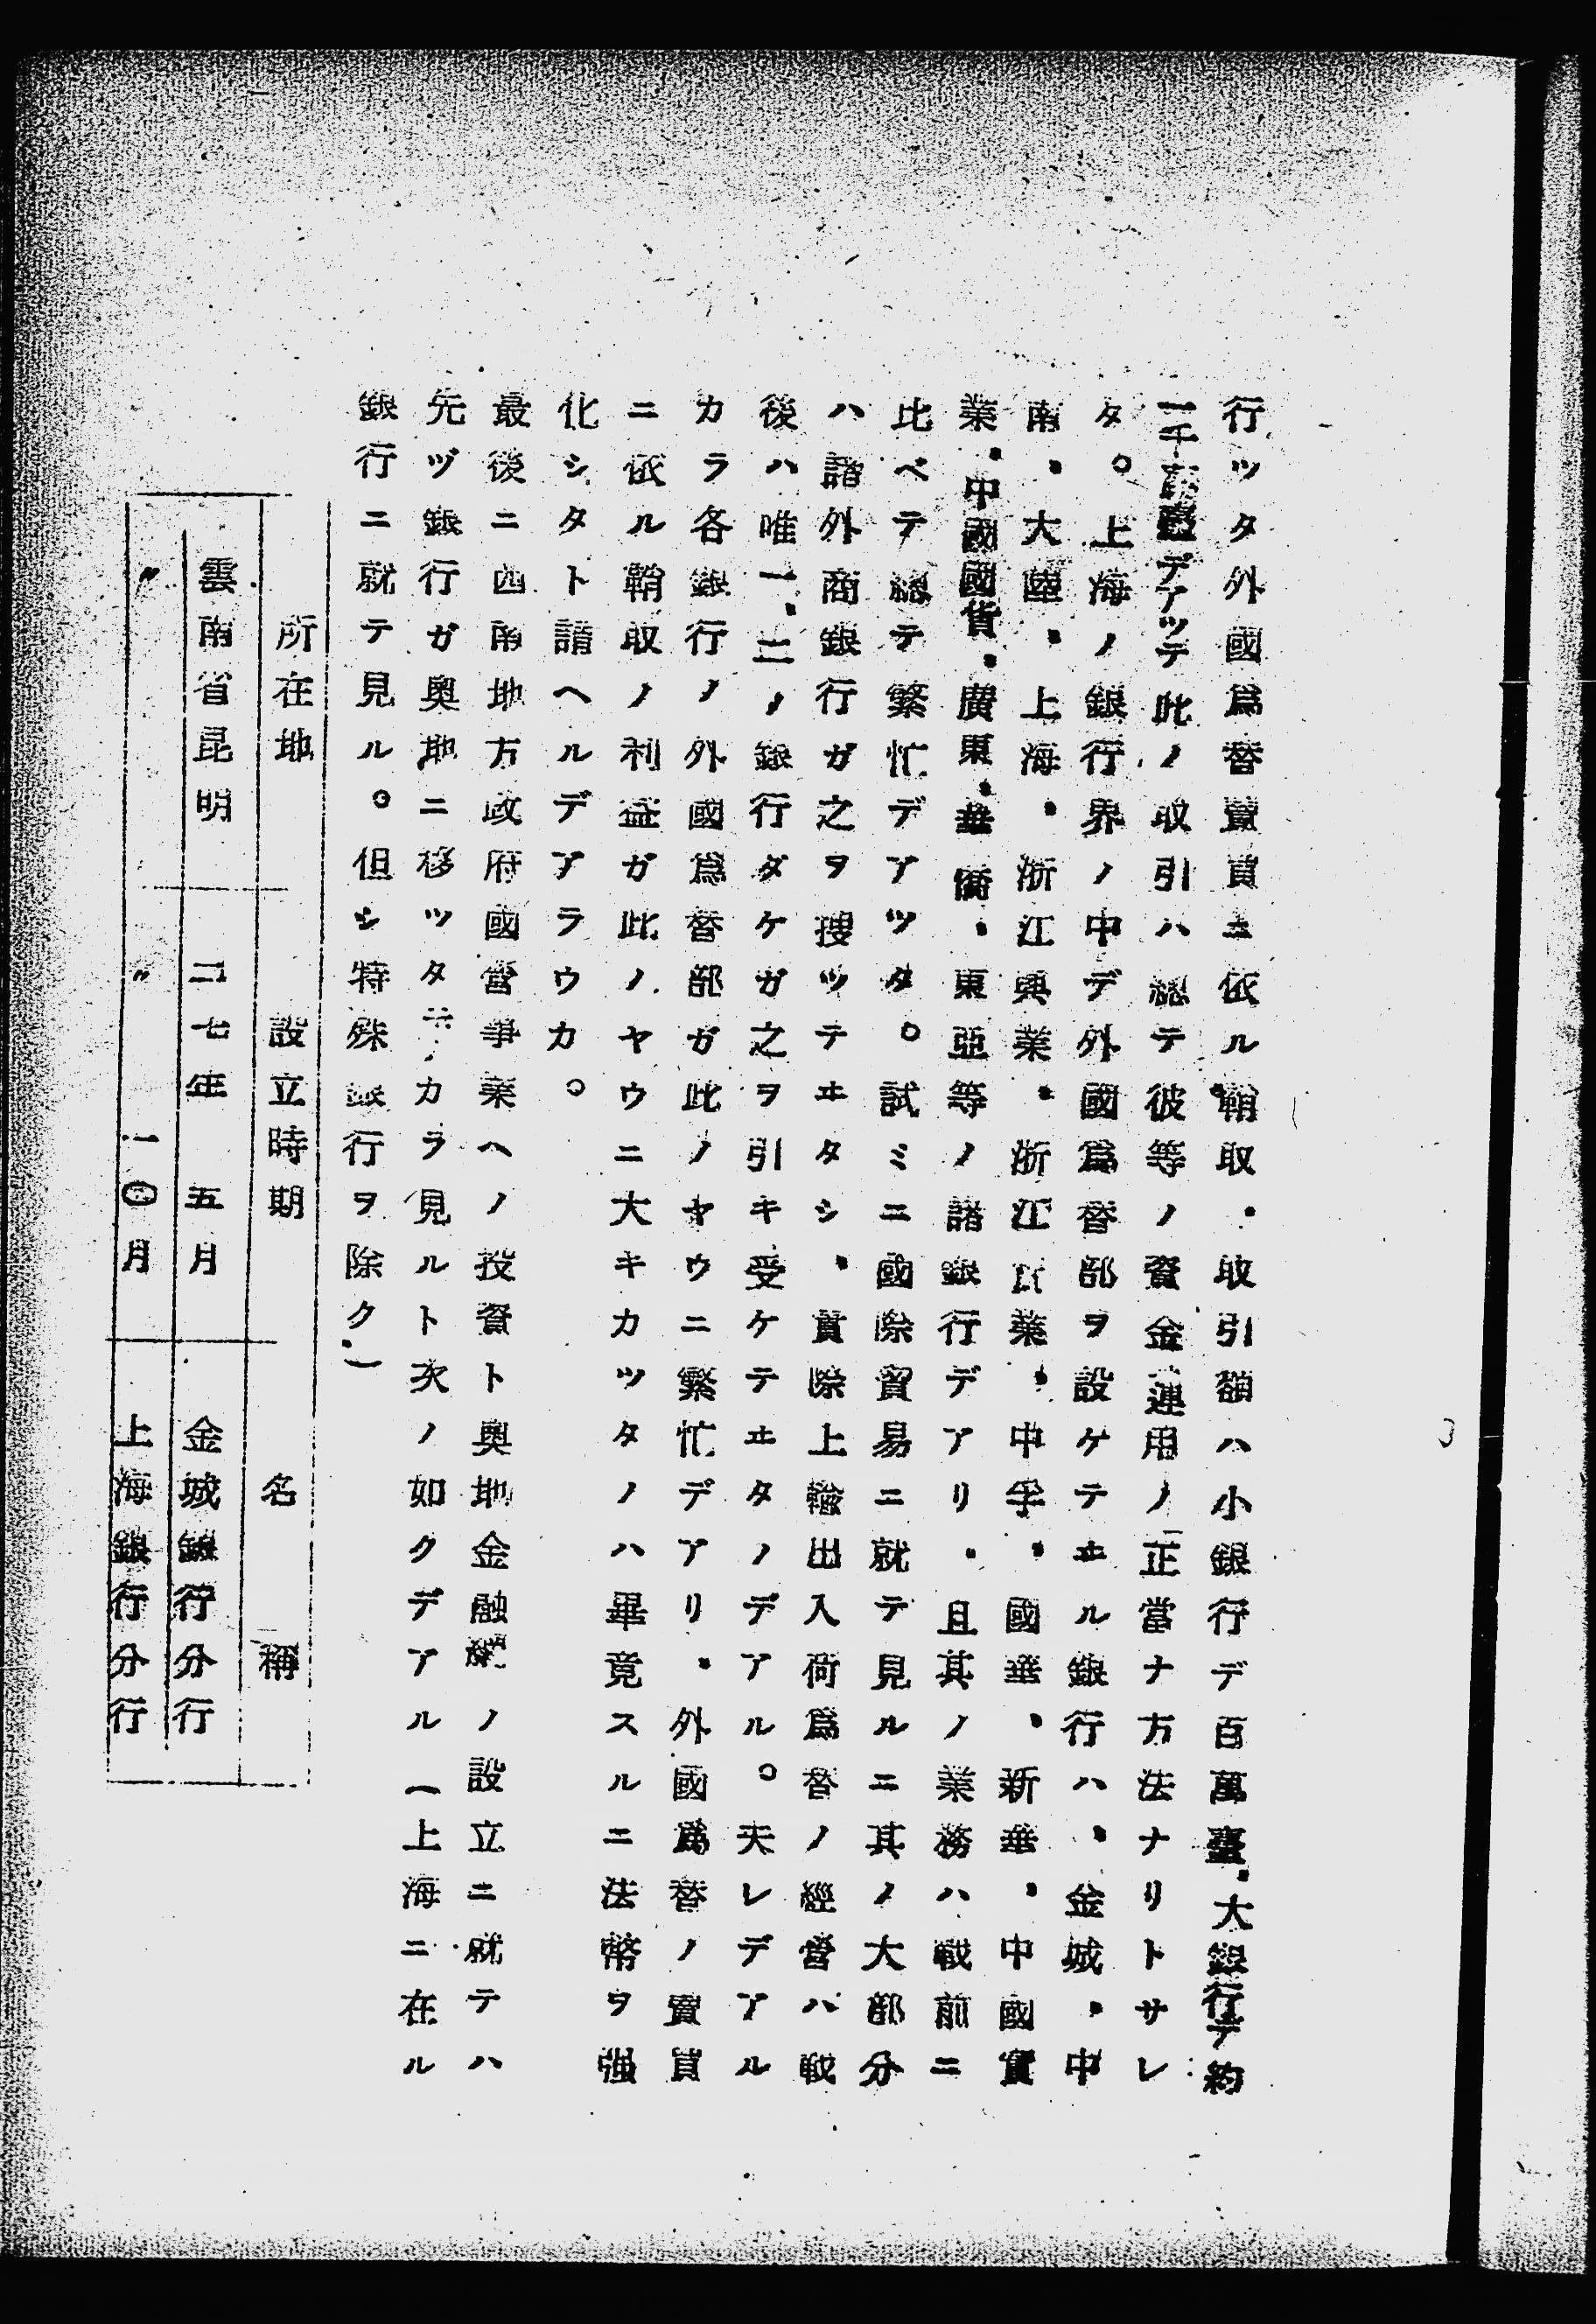 行ツタ外國爲替賣買ニ依ル鞘取、取引額ハ小銀行デ百萬臺、大銀行デ約
一千萬臺デアツテ此ノ取引ハ總テ彼等ノ資金運用ノ正當ナ方法ナリトサレ
タ。上海ノ銀行界ノ中デ外國爲替部ヲ設ケテヰル銀行ハ、金城、中
南、大陸、上海、浙江興業、浙江實業、中孚、國華、新華、中國實
業、中國國貨、廣東、華僑、東亞等ノ諸銀行デアリ、且其ノ業務ハ戰前ニ
比ベテ總テ繁忙デアツタ。試ミニ國際貿易ニ就テ見ルニ其ノ大部分
ハ諸外商銀行ガ之ヲ捜ツテヰタシ、實際上輸出入荷爲替ノ經營ハ戰
後ハ唯一、二ノ銀行ダケガ之ヲ引キ受ケテヰタノデアル。夫レデアル
カラ各銀行ノ外國爲替部ガ此ノヤウニ繁忙デアリ、外國爲替ノ賣買
ニ依ル鞘取ノ利益ガ此ノヤウニ大キカツタノハ畢竟スルニ法幣ヲ强
化シタト謂ヘルデアラウカ。
最後ニ西南地方政府國營事業ヘノ投資ト奥地金融網ノ設立ニ就テハ
先ヅ銀行ガ奥地ニ移ツタ カラ見ルト次ノ如クデアル(上海ニ在ル
銀行ニ就テ見ル。但シ特殊銀行ヲ除ク)
所在地 設立時期 名稱
雲南省昆明 二七年 五月 金城銀行分行
〃 〃 一〇月 上海銀行分行